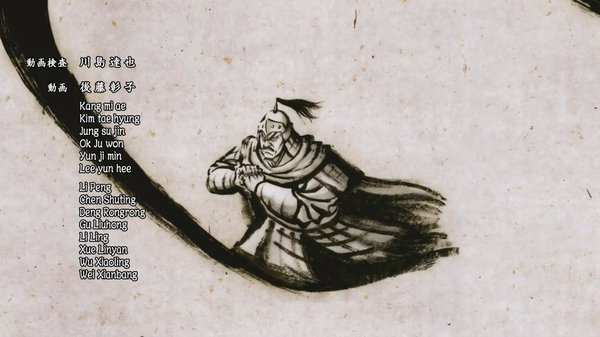 動画検査 川島達也
動画 後藤彰子
Kang mi ae
Kim tae hyung
Jung su jin
Ok Ju won
Yun ji min
Lee yun hee
Li Peng
Chen Shuting
Deng Rongrong
Gu Liuhong
Li Ling
Xue Linyan
Wu Xiaoling
Wei Xianbang